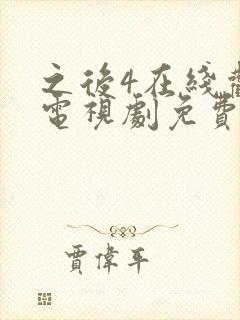 之後4在綫
電視劇免費
賈偉平